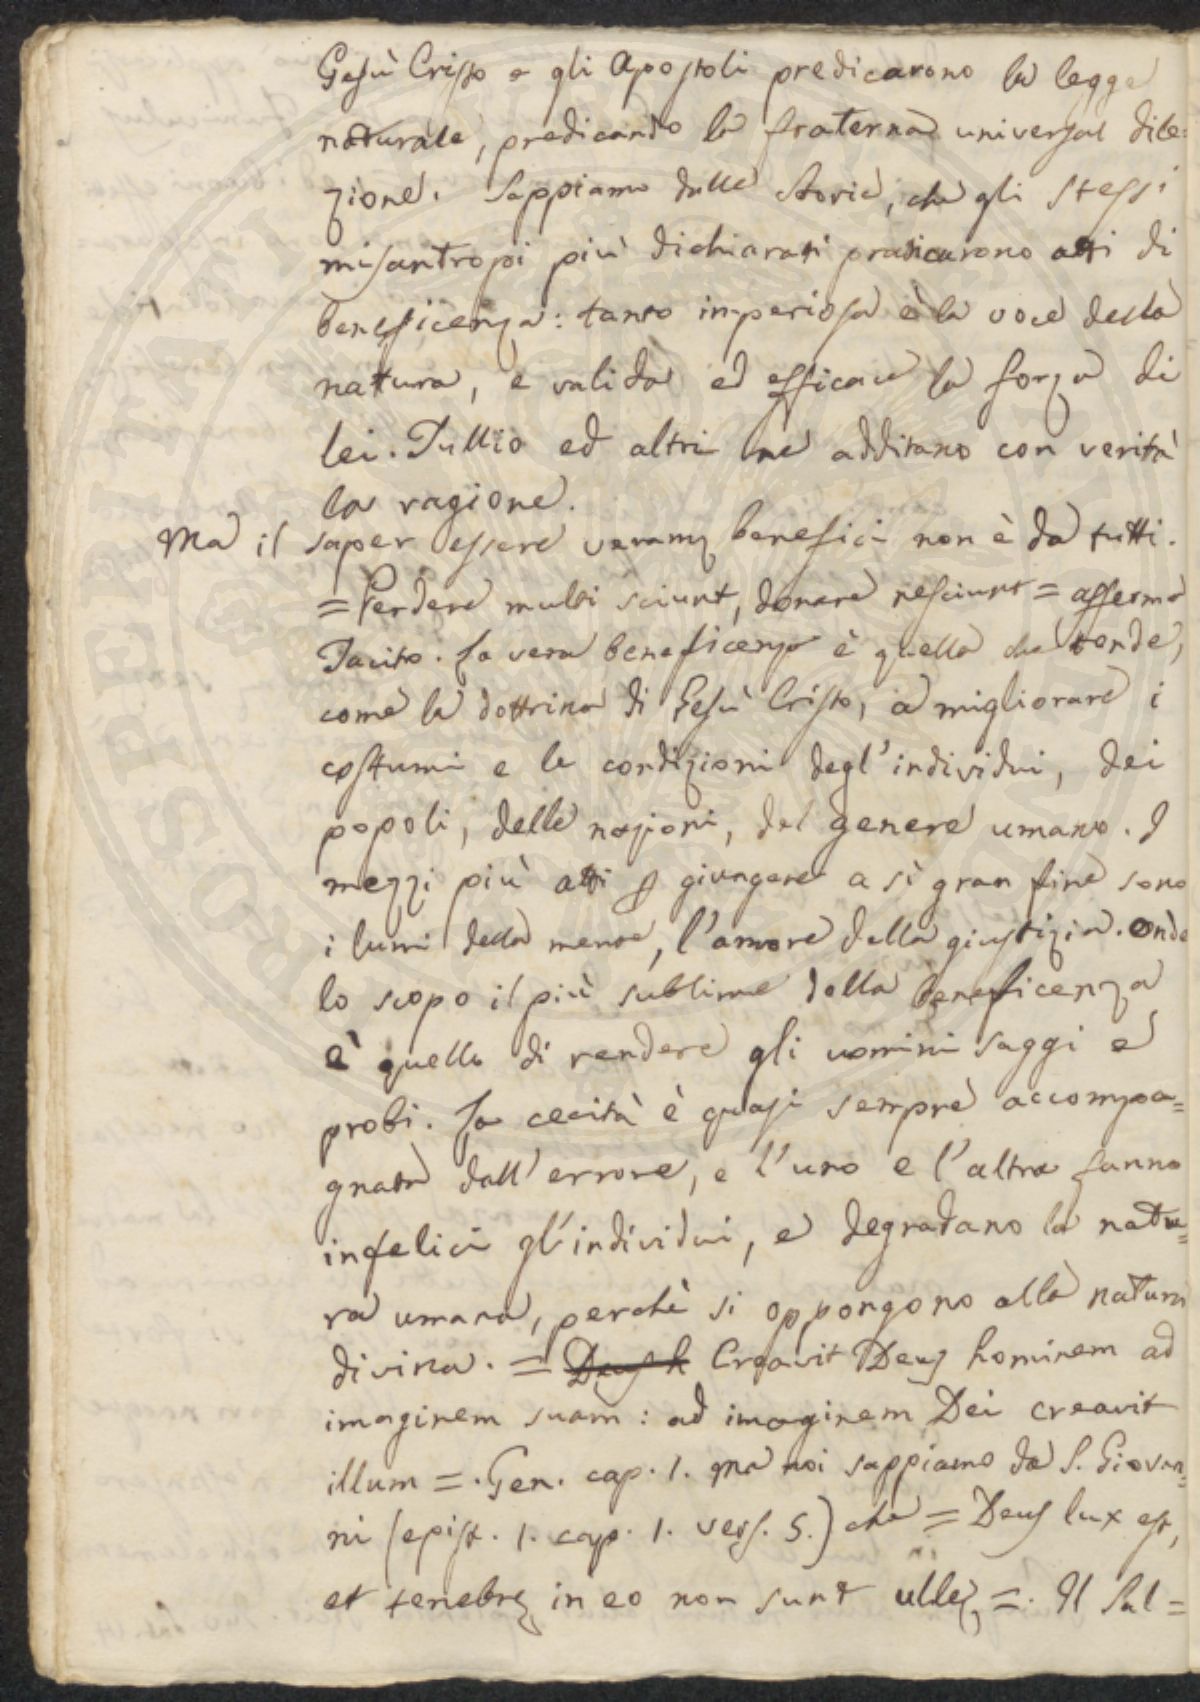 Gesù Cristo e gli Apostoli predicarono la legge
naturale, predicando la fraterna universal dile=
zione. Sappiamo dalle storie, che gli stessi
misantropi più dichiarati praticarono atti di
beneficenza: tanto imperiosa è la voce della
natura, e valida ed efficace la forza di
lei. Tullio ed altri ne additano con verità
la ragione.
Ma il saper essere veramẽ benefici non è da tutti.
= Perdere multi sciunt, donare nesciunt = afferma
Tacito. La vera beneficenza è quella che tende,
come la dottrina di Gesù Cristo, a migliorare i
costumi e le condizioni degl'individui, dei
popoli, delle nazioni, del genere umano. I
mezzi più atti ꝑ giungere a sì gran fine sono
i lumi della mente, l'amore della giustizia. Onde
lo scopo il più sublime della beneficenza
è quello di rendere gli uomini saggi e
probi. La cecità è quasi sempre accompa=
gnata dall'errore, e l'uno e l'altra fanno
infelici gl'individui, e degradano la natu=
ra umana, perchè si oppongono alla natura
divina. = Deus h Creavit Deus hominem ad
imaginem suam: ad imaginem Dei creavit
illum =. Gen. cap. 1. Ma noi sappiamo da S. Giovan=
ni (epist. 1. cap. 1. vers. 5.) che = Deus lux est,
et tenebrę in eo non sunt ullę =. Il Sal=
PROSPERITATI